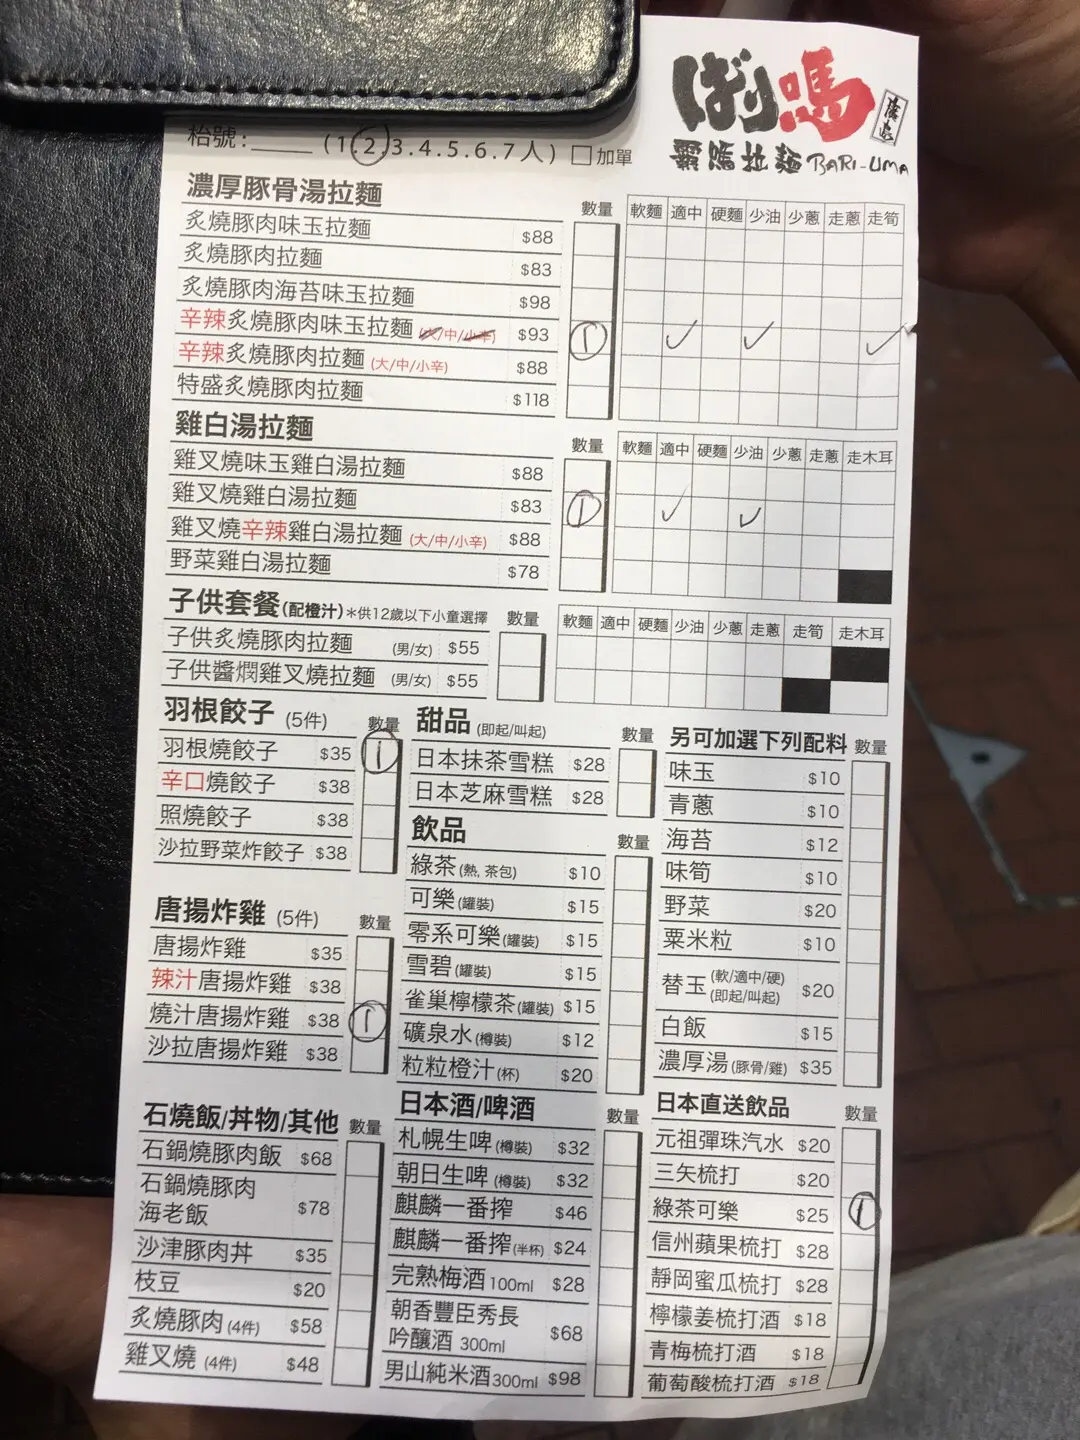 ばり嗎
霸嗎拉麵 BARI-UMA
枱號:_____ (1.2.3.4.5.6.7人) □加單
濃厚豚骨湯拉麵 數量 軟麵 適中 硬麵 少油 少蔥 走蔥 走筍
炙燒豚肉味玉拉麵 $88
炙燒豚肉拉麵 $83
炙燒豚肉海苔味玉拉麵 $98
辛辣炙燒豚肉味玉拉麵 (大/中/小辛) $93 1 ✓ ✓ ✓
辛辣炙燒豚肉拉麵 (大/中/小辛) $88
特盛炙燒豚肉拉麵 $118
雞白湯拉麵 數量 軟麵 適中 硬麵 少油 少蔥 走蔥 走木耳
雞叉燒味玉雞白湯拉麵 $88
雞叉燒雞白湯拉麵 $83 1 ✓ ✓
雞叉燒辛辣雞白湯拉麵 (大/中/小辛) $88
野菜雞白湯拉麵 $78
子供套餐(配橙汁)*供12歲以下小童選擇 數量 軟麵 適中 硬麵 少油 少蔥 走蔥 走筍 走木耳
子供炙燒豚肉拉麵 (男/女) $55
子供醬燜雞叉燒拉麵 (男/女) $55
羽根餃子 (5件) 數量
羽根燒餃子 $35 1
辛口燒餃子 $38
照燒餃子 $38
沙拉野菜炸餃子 $38
唐揚炸雞 (5件) 數量
唐揚炸雞 $35
辣汁唐揚炸雞 $38
燒汁唐揚炸雞 $38 1
沙拉唐揚炸雞 $38
石燒飯/丼物/其他 數量
石鍋燒豚肉飯 $68
石鍋燒豚肉
海老飯 $78
沙津豚肉丼 $35
枝豆 $20
炙燒豚肉 (4件) $58
雞叉燒 (4件) $48
甜品 (即起/叫起) 數量
日本抹茶雪糕 $28
日本芝麻雪糕 $28
飲品 數量
綠茶 (熱, 茶包) $10
可樂 (罐裝) $15
零系可樂 (罐裝) $15
雪碧 (罐裝) $15
雀巢檸檬茶 (罐裝) $15
礦泉水 (樽裝) $12
粒粒橙汁 (杯) $20
日本酒/啤酒 數量
札幌生啤 (樽裝) $32
朝日生啤 (樽裝) $32
麒麟一番搾 $46
麒麟一番搾 (半杯) $24
完熟梅酒 100ml $28
朝香豐臣秀長
吟釀酒 300ml $68
男山純米酒 300ml $98
另可加選下列配料 數量
味玉 $10
青蔥 $10
海苔 $12
味筍 $10
野菜 $20
粟米粒 $10
替玉 (軟/適中/硬) (即起/叫起) $20
白飯 $15
濃厚湯 (豚骨/雞) $35
日本直送飲品 數量
元祖彈珠汽水 $20
三矢梳打 $20
綠茶可樂 $25 1
信州蘋果梳打 $28
靜岡蜜瓜梳打 $28
檸檬姜梳打酒 $18
青梅梳打酒 $18
葡萄酸梳打酒 $18